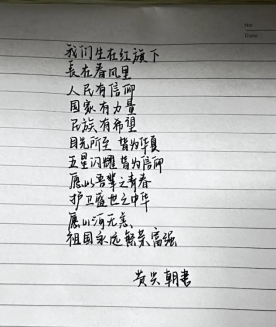 我们生在红旗下
长在春风里
人民有信仰
国家有力量
民族有希望
目光所至 皆为华夏
五星闪耀 皆为信仰
愿以吾辈之青春
护卫盛世之中华
愿山河无恙、
祖国永远繁荣富强
朝书